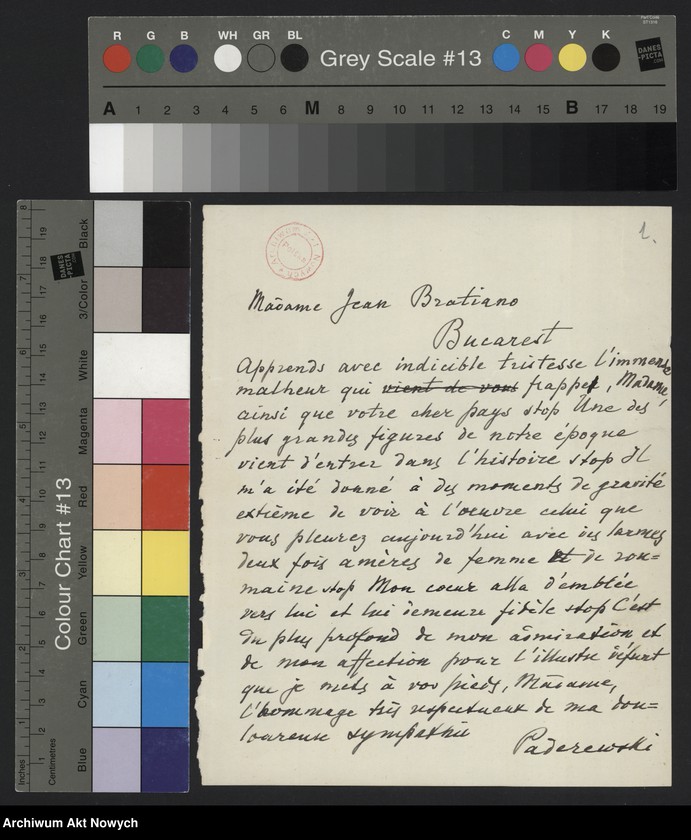 R G B WH GR BL Grey Scale #13 C M Y K DANES-PICTA.COM
A 1 2 3 4 5 6 M 8 9 10 11 12 13 14 15 B 17 18 19
Colour Chart #13
Black
3/Color
White
Magenta
Red
Yellow
Green
Cyan
Blue
Inches
Centimetres
Archiwum Akt Nowych
1.
Madame Jean Bratiano
Bucarest
Apprends avec indicible tristesse l'immense
malheur qui vient de vous frapper, Madame,
ainsi que votre cher pays stop Une des
plus grandes figures de notre époque
vient d'entrer dans l'histoire stop Il
m'a été donné à des moments de gravité
extrême de voir à l'oeuvre celui que
vous pleurez aujourd'hui avec des larmes
deux fois amères de femme et de rou=
maine stop Mon coeur alla d'emblée
vers lui et lui demeure fidèle stop C'est
du plus profond de mon admiration et
de mon affection pour l'illustre défunt
que je mets à vos pieds, Madame,
l'hommage très respectueux de ma dou=
loureuse sympathie
Paderewski
Archiwum Akt Nowych